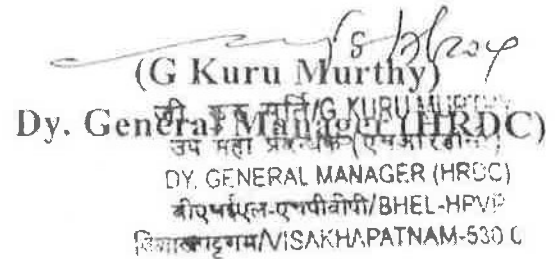 (G Kuru Murthy)
Dy. General Manager (HRDC)
जी गुरु मूर्ति/G KURU MURTHY
उप महा प्रबन्धक (एचआरडीसी)
DY. GENERAL MANAGER (HRDC)
बीएचईएल-एचपीवीपी/BHEL-HPVP
विशाखपट्टणम/VISAKHAPATNAM-530 0